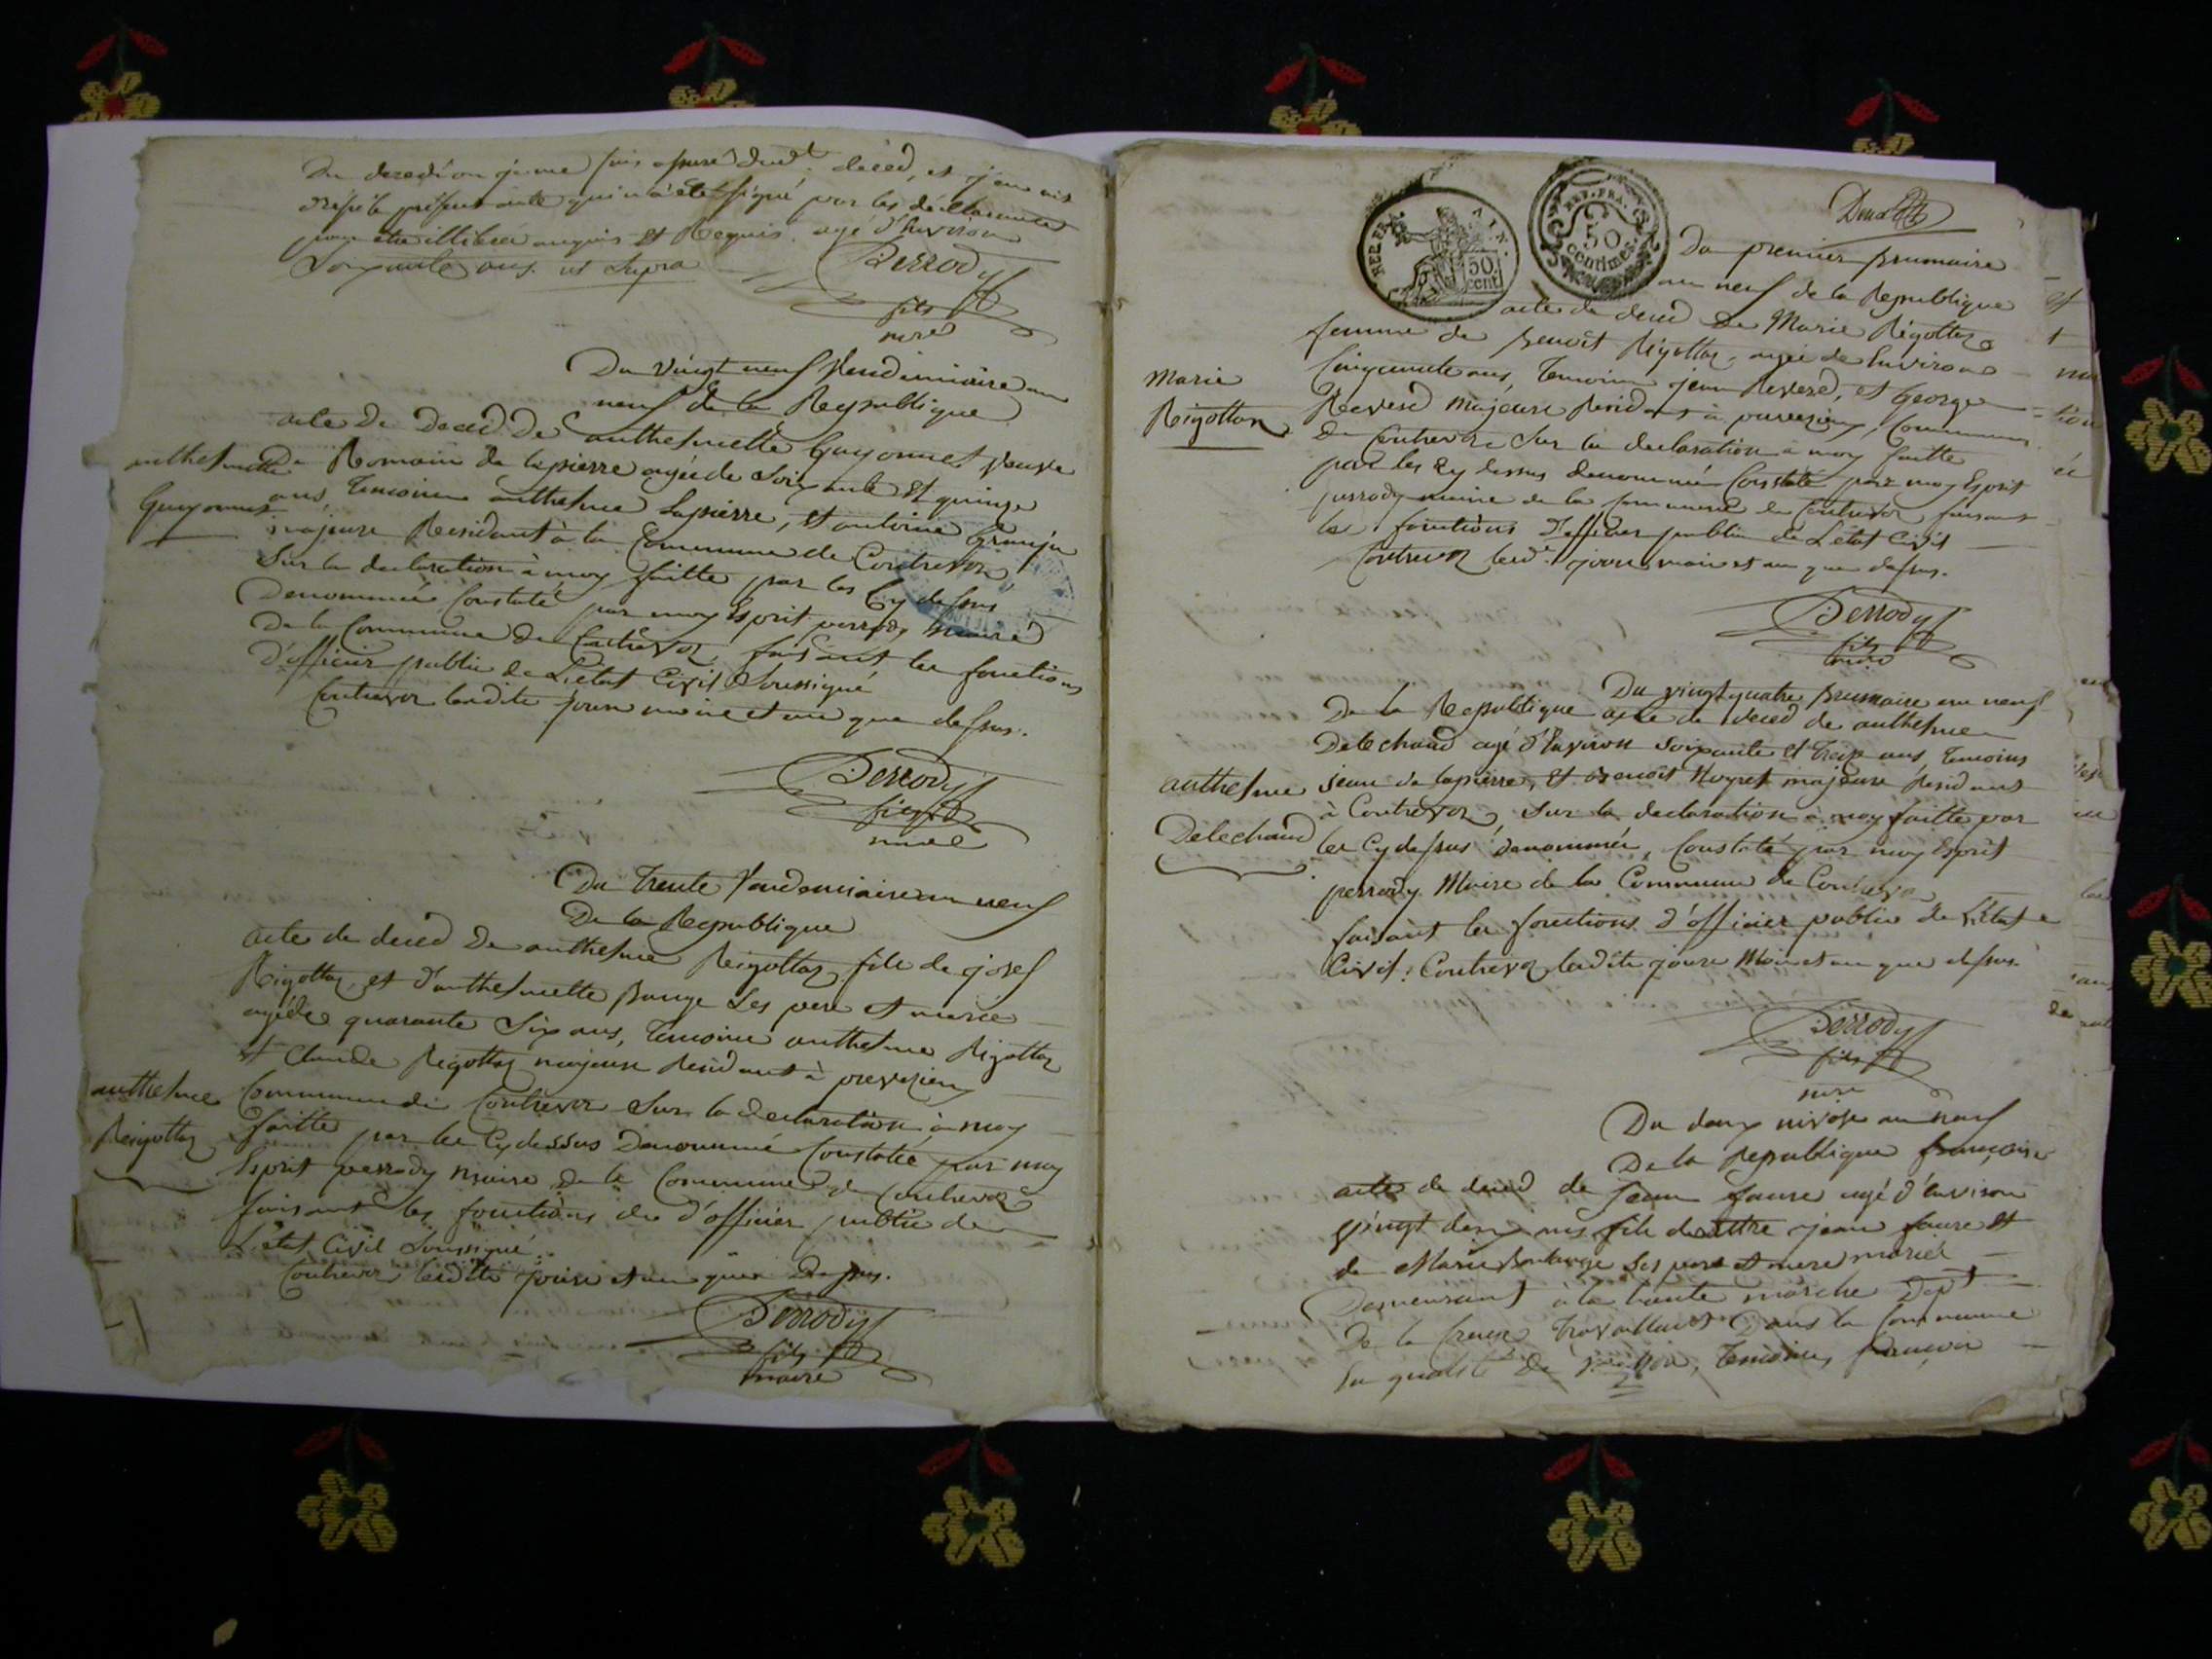 je me suis assuré dud.t décéd, et j'en ait
présente acte qui n'a été signé par les déclarants
pour etre illitéré anquis et Requis. agé d'Environ
Soixante ans. ut Supra
Perrody
fils
mere
Du vingt neuf Vendemiaire an
neuf de la Republique
acte De Deced De anthelmette Guyonnet veuve
De Romain de Lapierre agée de Soixante et quinze
anthelmette
ans, temoins anthelme Lapierre, et antoine Granju
Guyonnet
majeurs Residant à la Commune de Contrevoz
Sur la declaration à moy faitte par les Cy dessus
Denommée Constaté par moy Esprit perrody maire
De la Commune De Contrevoz, faisant les fonctions
D'officier public de L'état Civil Soussigné
Contrevoz lesdits jour moi et an que dessus.
Perrody
fils
maire
Du Trente Vendemiaire an neuf
De la Republique
acte de deced De anthelme Reigottaz fils de josef
Rigottaz et d'anthelmette Bange Ses pere et mere
agé de quarante Six ans, temoins anthelme Rigottaz
et Claude Rigottaz majeurs Résidant à preveyzieu
anthelme
Commune de Contrevoz Sur la declaration à moy
Reigottaz
faitte par les Cy dessus Denommé Constatée par moy
Esprit perrody maire de la Commune de Contrevoz
faisant les fonctions de d'officier public de
L'état Civil Soussigné.
Contrevoz lesdits jours et an que Dessus.
Perrody
fils
maire
REP.FRA. AIN.
50 cent
REP. FRA.
50
centimes
Du premier Brumaire
an neuf de la Republique
acte de deced De Marie Rigottaz
femme de Benoit Rigottaz, agée de Environ
Cinquante ans, temoins jean Reverd, et George
Marie
Reverd majeurs Residant à preveyzieu, Commune
Rigottaz
De Contrevoz Sur la declaration à moy faitte
par les Cy dessus denommée Constaté par moy Esprit
perrody maire de la Commune de Contrevoz faisant
les fonctions D'officier public de L'état Civil
Contrevoz lesd. jour moi et an que dessus.
Perrody
fils
maire
Du vingt quatre Brumaire an neuf
De la Republique acte de deced de anthelme
Delechaud agé d'Environ Soixante et treize ans, temoins
anthelme
jean de lapierre, et Benoit Noyret majeurs Residant
à Contrevoz, Sur la declaration à moy faitte par
Delechaud
les Cy dessus denommée, Constaté par moy Esprit
perrody Maire de la Commune de Contrevoz
faisant les fonctions d'officier public de L'état
Civil. Contrevoz lesdits jours Moi et an que dessus.
Perrody
fils
mere
Du deux nivose an neuf
De la Republique française
acte de deced de jean faure agé d'environ
vingt deux ans fils d'autre jean faure et
de Marie Boulange Ses pere et mere mariés
Demeurant à la haute marche Dept
De la Creuze, Travaillant Dans la Commune
En qualité De temoins, françois